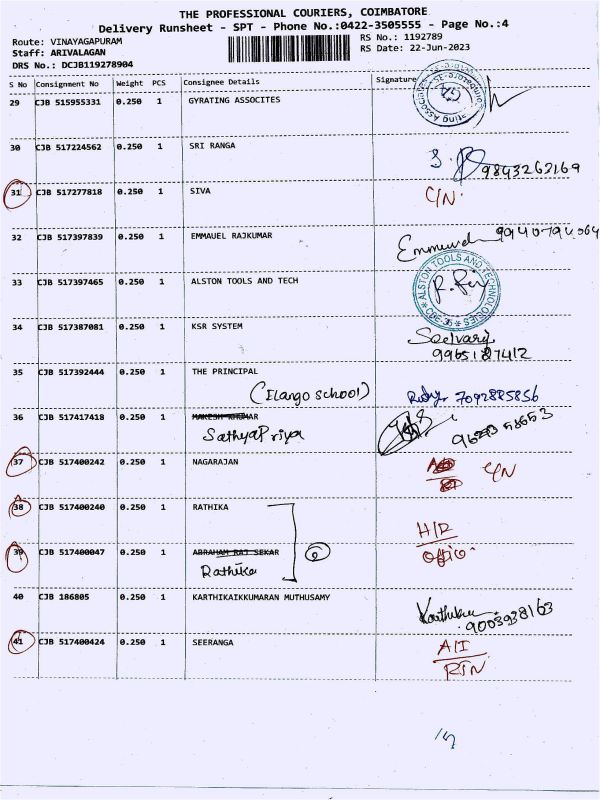 THE PROFESSIONAL COURIERS, COIMBATORE
Delivery Runsheet - SPT - Phone No.:0422-3505555 - Page No.:4
Route: VINAYAGAPURAM RS No.: 1192789
Staff: ARIVALAGAN RS Date: 22-Jun-2023
DRS No.: DCJB119278904
S No Consignment No Weight PCS Consignee Details Signature
29 CJB 515955331 0.250 1 GYRATING ASSOCITES
30 CJB 517224562 0.250 1 SRI RANGA
9843262169
31 CJB 517277818 0.250 1 SIVA C/N.
32 CJB 517397839 0.250 1 EMMAUEL RAJKUMAR
33 CJB 517397465 0.250 1 ALSTON TOOLS AND TECH
ALSTON TOOLS AND TECHNOLOGIES
CBE-35
34 CJB 517387081 0.250 1 KSR SYSTEM
9965187412
35 CJB 517392444 0.250 1 THE PRINCIPAL
(Elango school) 7092825856
36 CJB 517417418 0.250 1 MAKESH KUMAR
SathyaPriya
37 CJB 517400242 0.250 1 NAGARAJAN C/N
38 CJB 517400240 0.250 1 RATHIKA
H/D
39 CJB 517400047 0.250 1 ABRAHAM RAJ SEKAR Office.
Rathika
40 CJB 186805 0.250 1 KARTHIKAIKKUMARAN MUTHUSAMY
9003938163
41 CJB 517400424 0.250 1 SEERANGA A/I
RTN